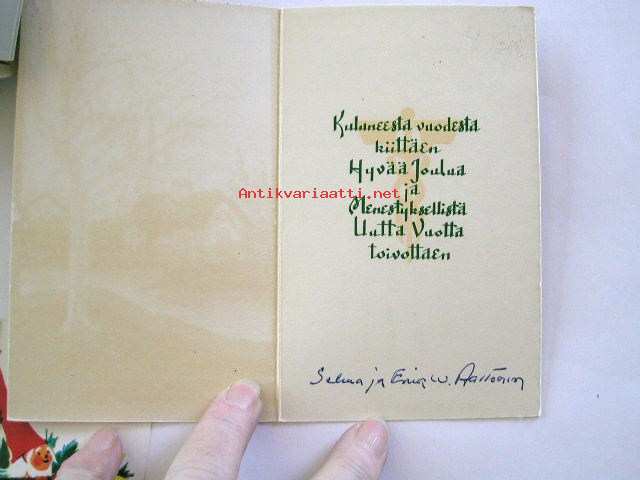 Kuluneesta vuodesta
kiittäen
Hyvää Joulua
ja
Menestyksellistä
Uutta Vuotta
toivottaen
Antikvariaatti.net
Selma ja